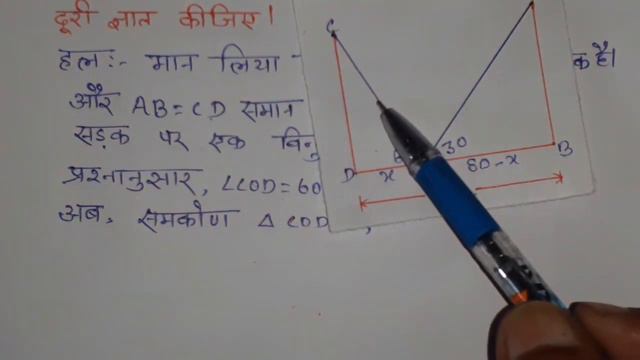 दूरी ज्ञात कीजिए।
हलः- मान लिया
क है।
और AB = CD समान
सड़क पर एक
प्रश्नानुसार, ∠COD = 60
अब, समकोण △ COD ,
C
D
x
30
80-x
B